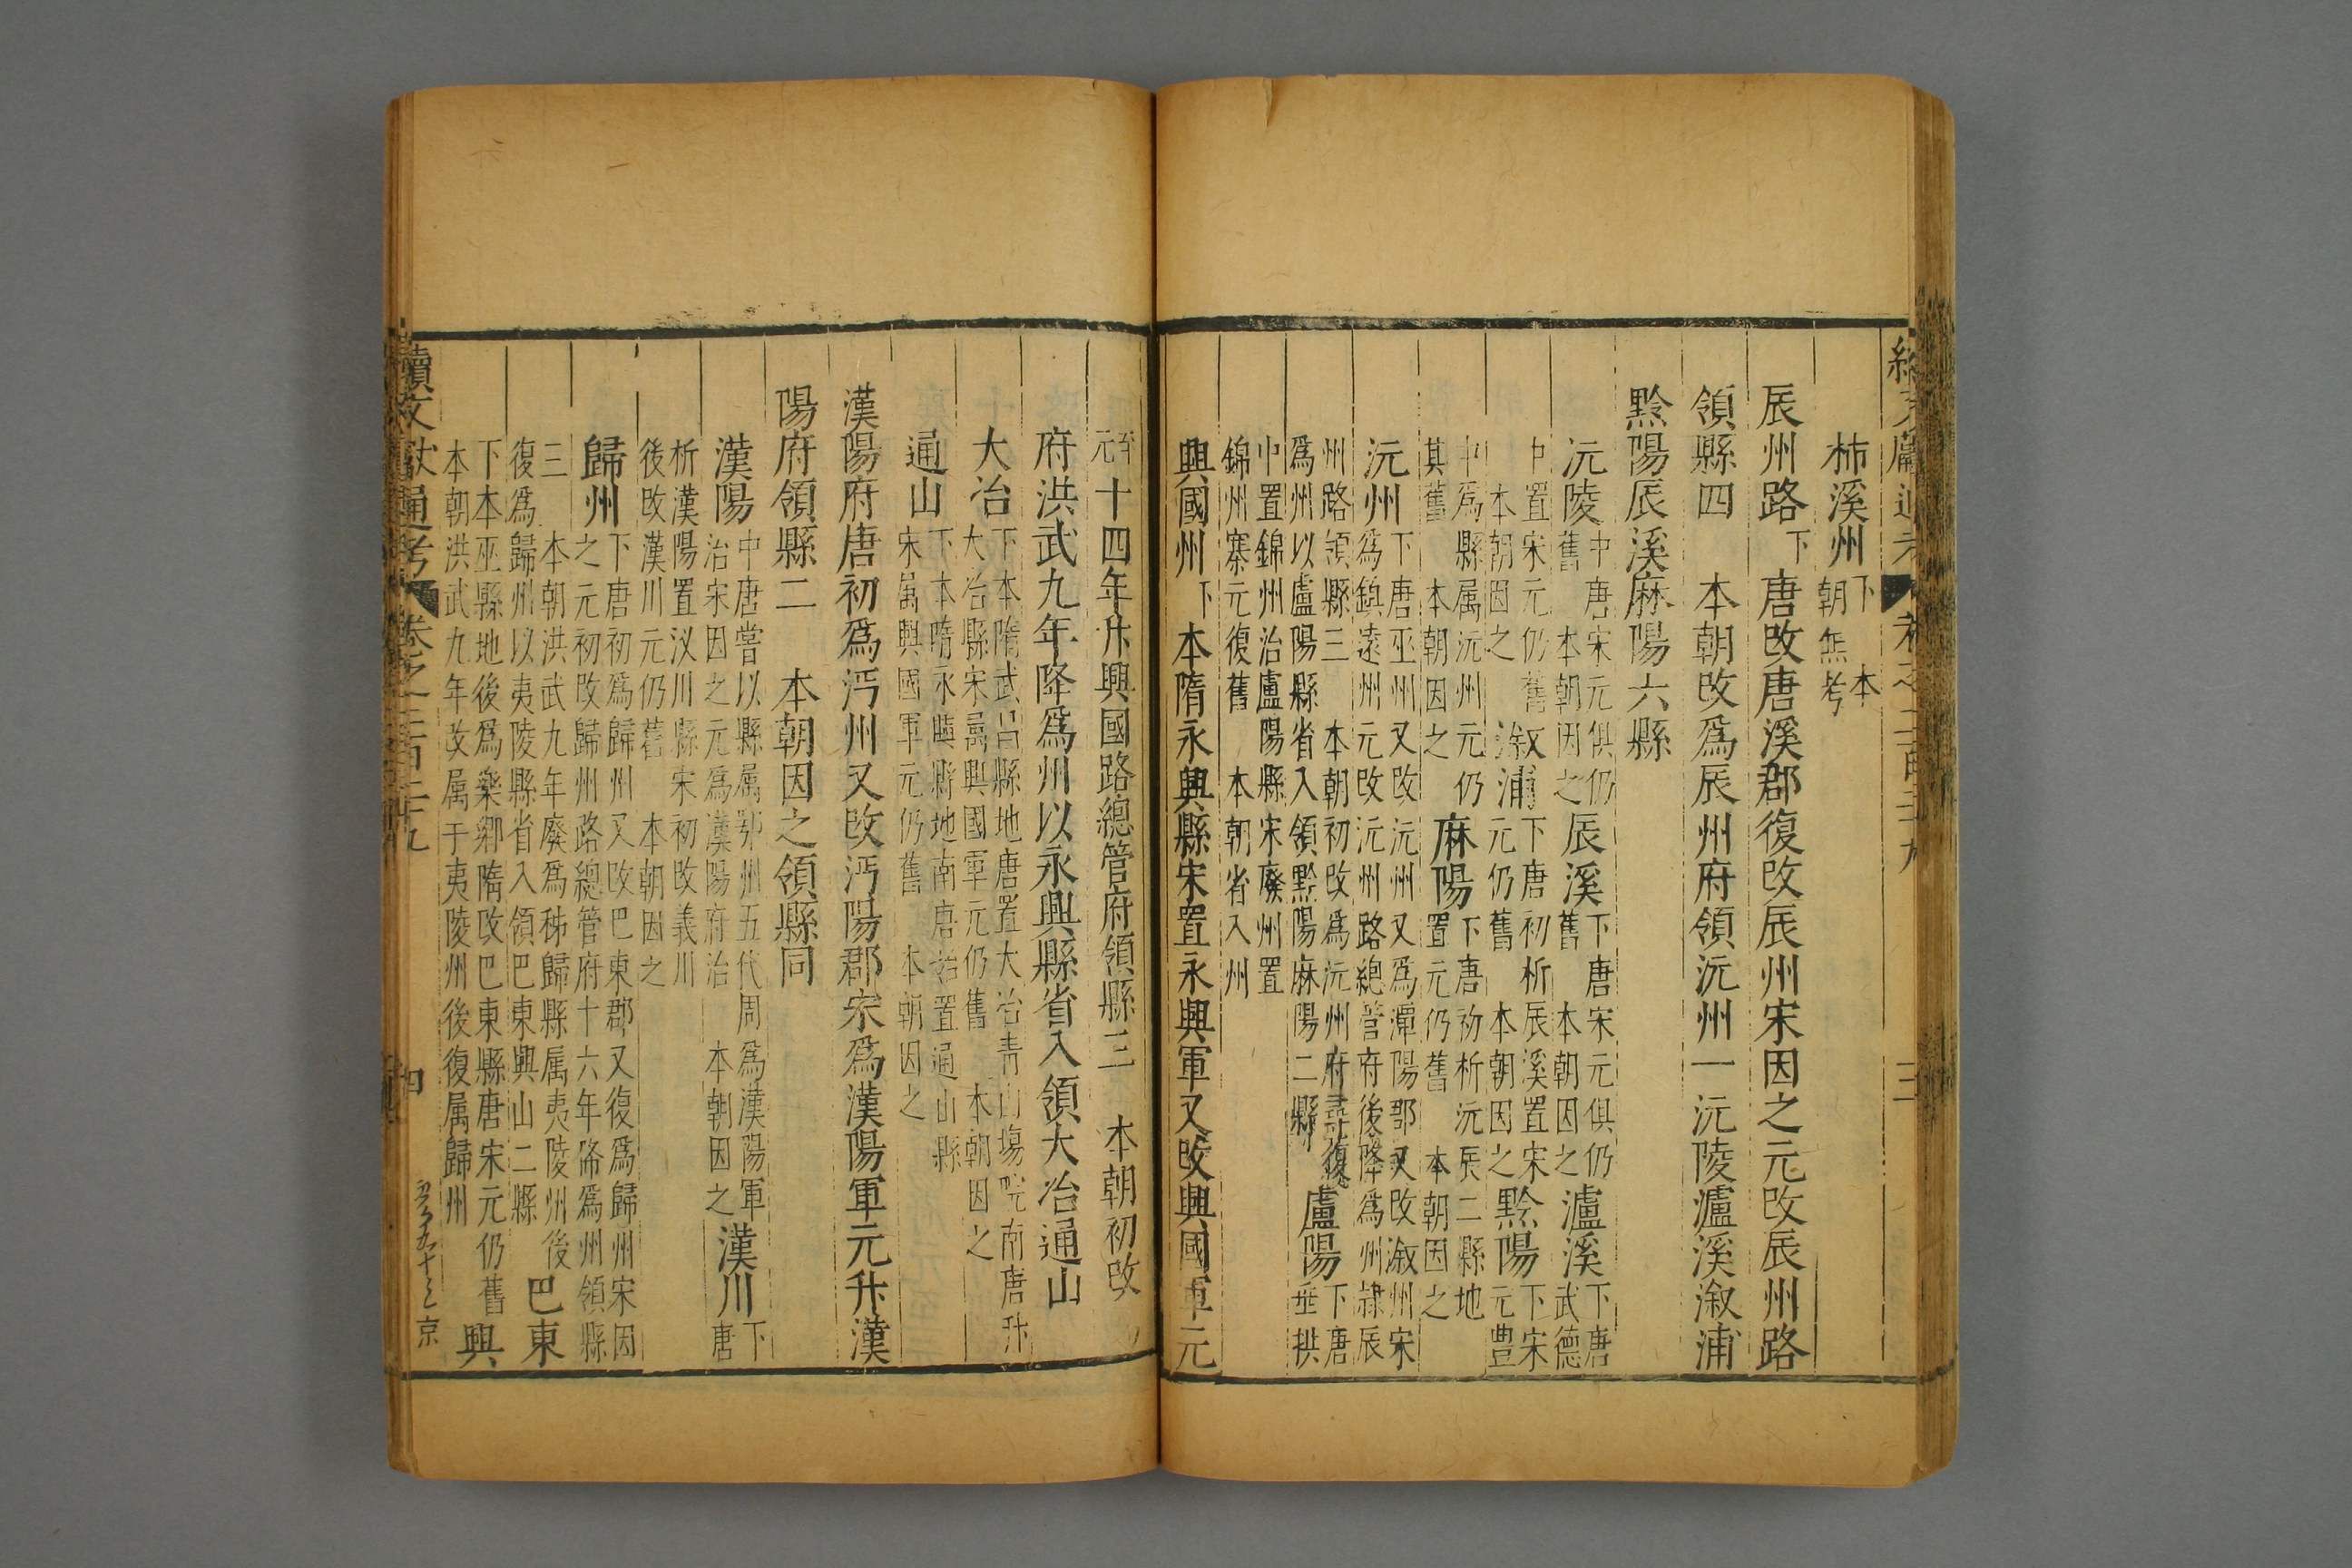 柿溪州下本
朝無考
辰州路下唐攺唐溪郡復攺辰州宋因之元攺辰州路
領縣四　本朝攺爲辰州府領沅州一沅陵瀘溪溆浦
黔陽辰溪麻陽六縣
沅陵中唐宋元俱仍舊　本朝因之　辰溪下唐宋元俱仍舊　本朝因之　瀘溪下唐武德
中置宋元仍舊　本朝因之　溆浦下唐初析辰溪置宋元仍舊　本朝因之　黔陽下宋元豊
中爲縣属沅州元仍其舊　本朝因之　麻陽下唐初析沅辰二縣地置元仍舊　本朝因之
沅州下唐巫州又攺沅州又爲潭陽郡又攺溆州宋爲鎮遠州元攺沅州路總管府後降爲州隷辰
州路領縣三　本朝初攺爲沅州府尋復爲州以盧陽縣省入領黔陽麻陽二縣　盧陽下唐垂拱
中置錦州治盧陽縣宋廢州置錦州寨元復舊　本朝省入州
興國州下本隋永興縣宋置永興軍又攺興國軍元
至元十四年升興國路總管府領縣三　本朝初攺
府洪武九年降爲州以永興縣省入領大冶通山
大冶下本隋武昌縣地唐置大冶青山場院南唐升大冶縣宋属興國軍元仍舊　本朝因之
通山下本隋永興縣地南唐始置通山縣宋属興國軍元仍舊　本朝因之
漢陽府唐初爲沔州又攺沔陽郡宋爲漢陽軍元升漢
陽府領縣二　本朝因之領縣同
漢陽中唐嘗以縣属鄂州五代周爲漢陽軍治宋因之元爲漢陽府治　本朝因之　漢川下唐
析漢陽置汊川縣宋初攺義川後攺漢川元仍舊　本朝因之
歸州下唐初爲歸州又攺巴東郡又復爲歸州宋因之元初攺歸州路總管府十六年降爲州領縣
三　本朝洪武九年廢爲秭歸縣属夷陵州後復爲歸州以夷陵縣省入領巴東興山二縣　巴東
下本巫縣地後爲樂鄉隋攺巴東縣唐宋元仍舊　本朝洪武九年攺属于夷陵州後復属歸州　興
續文献通考　卷之二百二十九　四